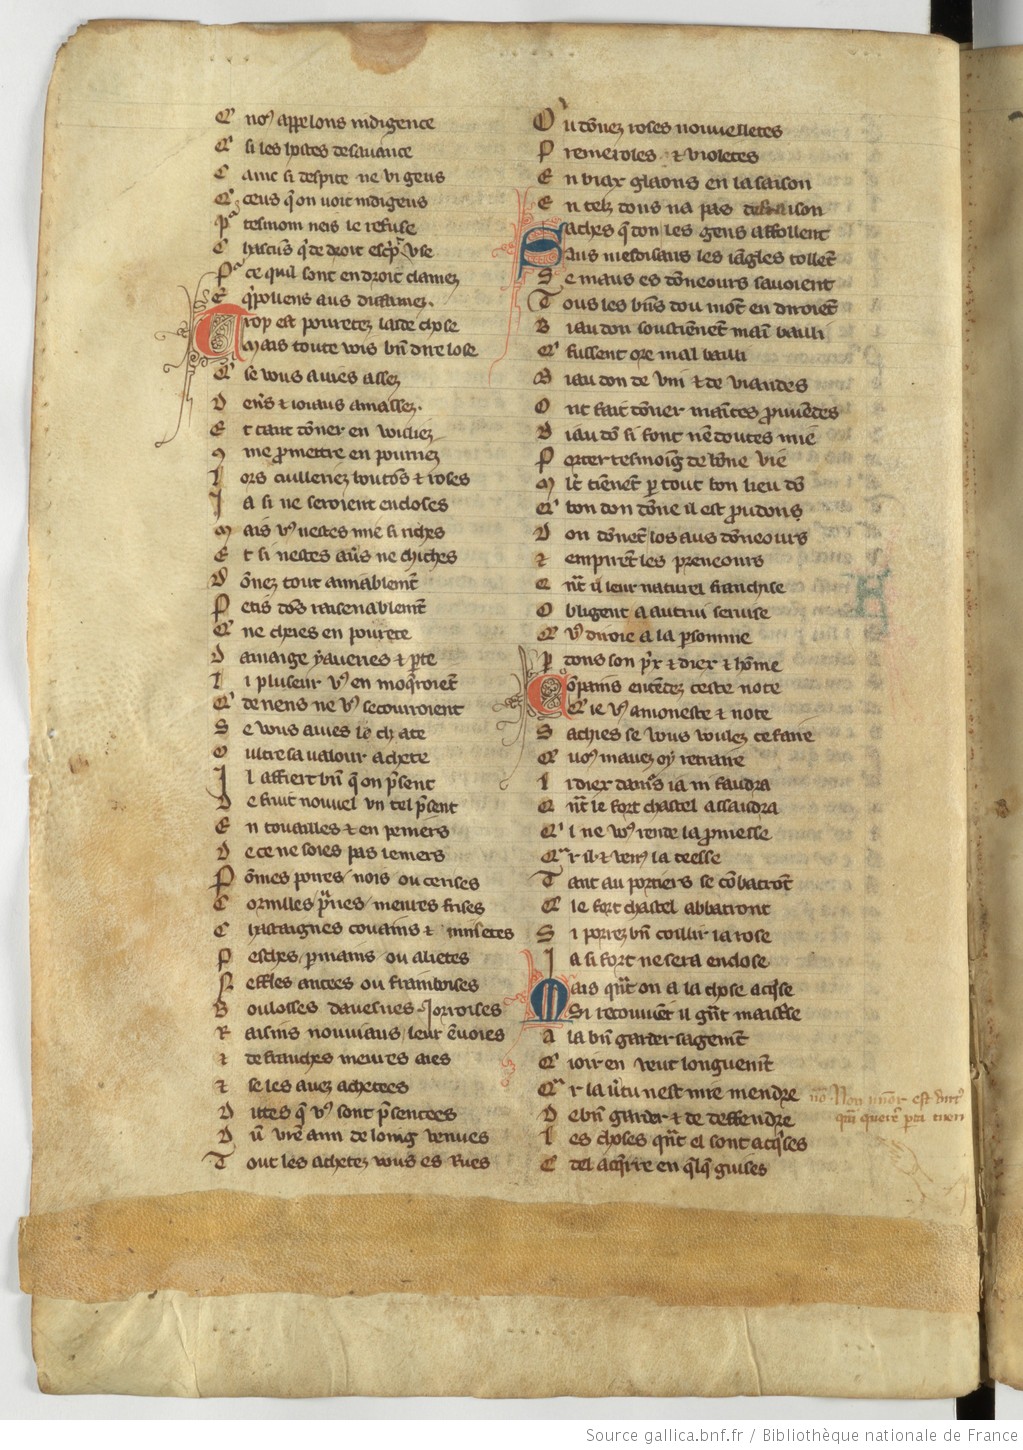 Q' no9 appelons indigence
Q' si les hostes desauance
C ainc si despite ne ui gens
Q' ceus q̃ on uoit indigens
Pᵃ tesmoin neis le refuse
C hascuns
Pᵃ ce quil sont en droit clamez
Et aus diffamez.
Trop est pouretez laide chose
Mais toute uois bn̄ dire lose
Q' se uous auies assez
D eniers & ioiaus amassez.
E t tant dõner en uoliez
9 me prometre en pourriez
L ors cuilleriez boutõs & roses
J a si ne seroient encloses
M ais v9 nestes mie si riches
E t si nestes auers ne chiches
D õnez tout amiablemt̃
P etis dõs raisenablemt̃
Q' ne chiees en pourete
D amaige y aueries & perte
L i pluseur v9 en moqroient̃
Q' de riens ne v9 secourroient
S e uous auies le chate
O ultre sa ualour achete
J l affiert bn̄ q̃ on p̃sent
D e fruit nouuel vn bel p̃sent
E n touailles & en peniers
D e ce ne soies pas leniers
P õmes poires nois ou cerises
C ormilles prunes meures frises
C hastaignes couains & miisetes
P esches parmains ou alietes
N effles antees ou framboises
B eloises dauesnes Jorroises
R aisins nouuiaus leur ẽuoies
& de franches meures aies
& se les auez achetees
D ites q̃ v9 sont p̃sentees
D ũ vr̃e ami de loing uenues
T out les achetez uous es rues
O u dõnez roses nouuelletes
P remeroles & uioletes
E n biax glaons en la saison
E n telz dons na pas desraison
Saches q̃ don les gens affollent
Aus mesdisans les iãgles tollent̃
S e maus es dõneours sauoient
T ous les bn̄s dou mõt en diroient
B iau don soustienẽt maĩt bailli
Q' fussent ore mal bailli
B iau don de vin & de uiandes
O nt fait dõner maintes prouẽdes
B iau dõ si font nẽ doutes mie
P orter tesmoig̃ de bõne vie
M lt̃ tiẽnent p tout bon lieu dõ
Q' bon don dõne il est prudons
D on dõnent los aus dõneours
& empirent les preneours
Q nt̃ il leur naturel franchise
O bligent a autrui seruise
Q' v9 diroie a la p̃somme
P dons son pr̃s & diex & hõme
Cõpains entẽdez ceste note
Q' ie v9 amoneste & note
S achies se uous uoulez ce faire
Q' uo9 mauez oy retraire
L i diex damr̃s ia ni faudra
Q nt̃ le fort chastel assaudra
Q' l ne vo9 rende sa p̃messe
Qᵃ r il & uenus la deesse
T ant au portiers se cõbatrõt
Q' le fort chastel abbatront
S i porrez bn̄ coillir la rose
J a si fort ne sera enclose
Mais qñt on a la chose acq̃se
Si reconuiẽt il gñt maistrise
A la bn̄ garder sagemt̃
Q' ioir en ueut longuemt̃
Qᵃ r la u̾tu nest mie mendre
D e bn̄ garder & de deffendre
L es choses qñt el sont acq̃ses
C del acq̃rre en q̃lq̃ guises
nõ Non minor est virt9
qm̃ querere parta tueri
Source gallica.bnf.fr / Bibliothèque nationale de France